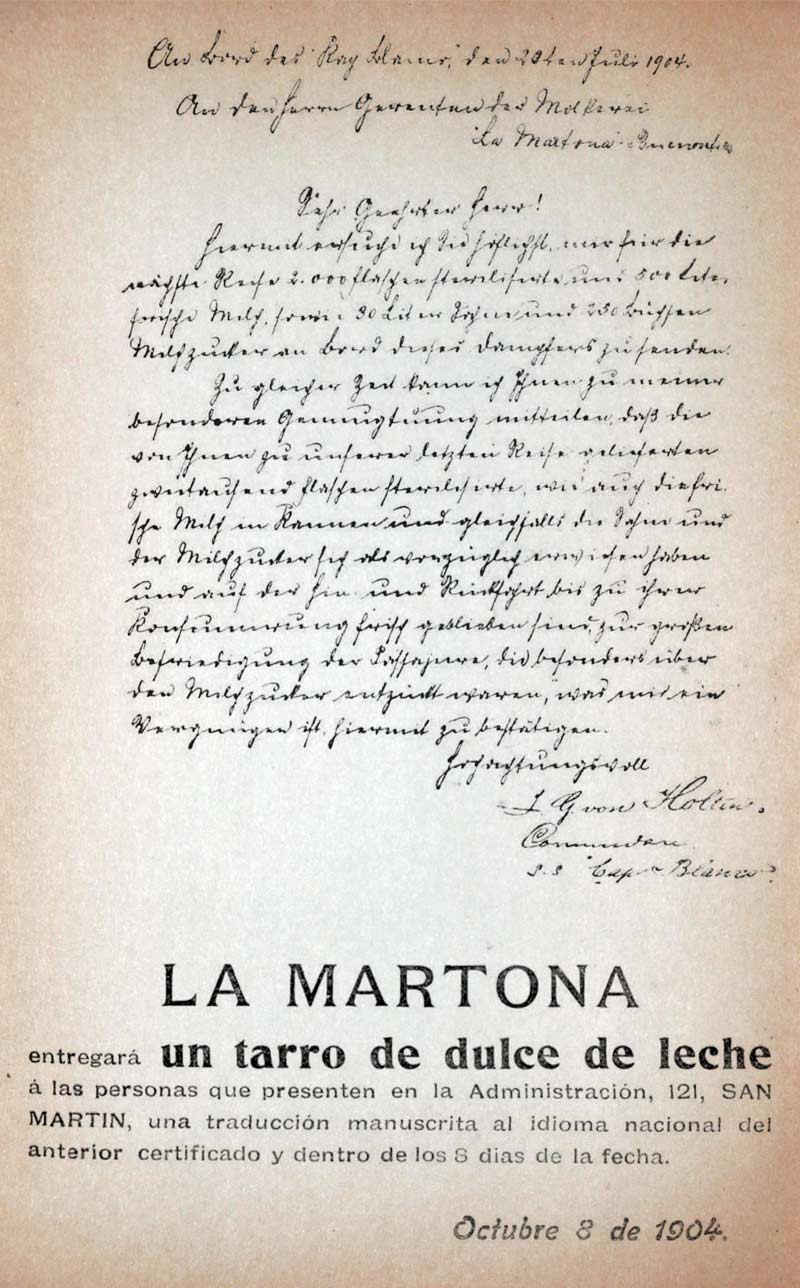 An Bord des "Kap Blanc", den 20ten Juli 1904.
An den Herrn Gerenten der Molkerei
"La Martona"
Sehr Geehrter Herr!
Hiermit ersuche ich Sie höflichst, mir für die
nächste Reise 2.000 flaschen sterilisierte und 500 Liter
frische Milch, sowie 30 Liter Sahne und 250 Büchsen
Milchzucker an Bord dieses Dampfers zu senden.
Zu gleicher Zeit kann ich Ihnen zu meiner
besonderen Genugtuung mitteilen, daß die
von Ihnen zu unserer letzten Reise gelieferten
zweitausend flaschen sterilisierte, wie auch die fri-
sche Milch in Kannen und gleichfalls die Sahne und
der Milchzucker sich als vorzüglich erwiesen haben
und auf der Hin und Rückfahrt bis zu ihrer
Konsumierung frisch geblieben sind, zur großen
Befriedigung der Passajere, die besonders über
den Milchzucker entzückt waren, was mir ein
Vergnügen ist, hiermit zu bestätigen.
Hochachtungsvoll
J G. von Holten.
s.s "Cap Blanco"
LA MARTONA
entregará un tarro de dulce de leche
á las personas que presenten en la Administración, 121, SAN
MARTIN, una traducción manuscrita al idioma nacional del
anterior certificado y dentro de los 8 dias de la fecha.
Octubre 8 de 1904.